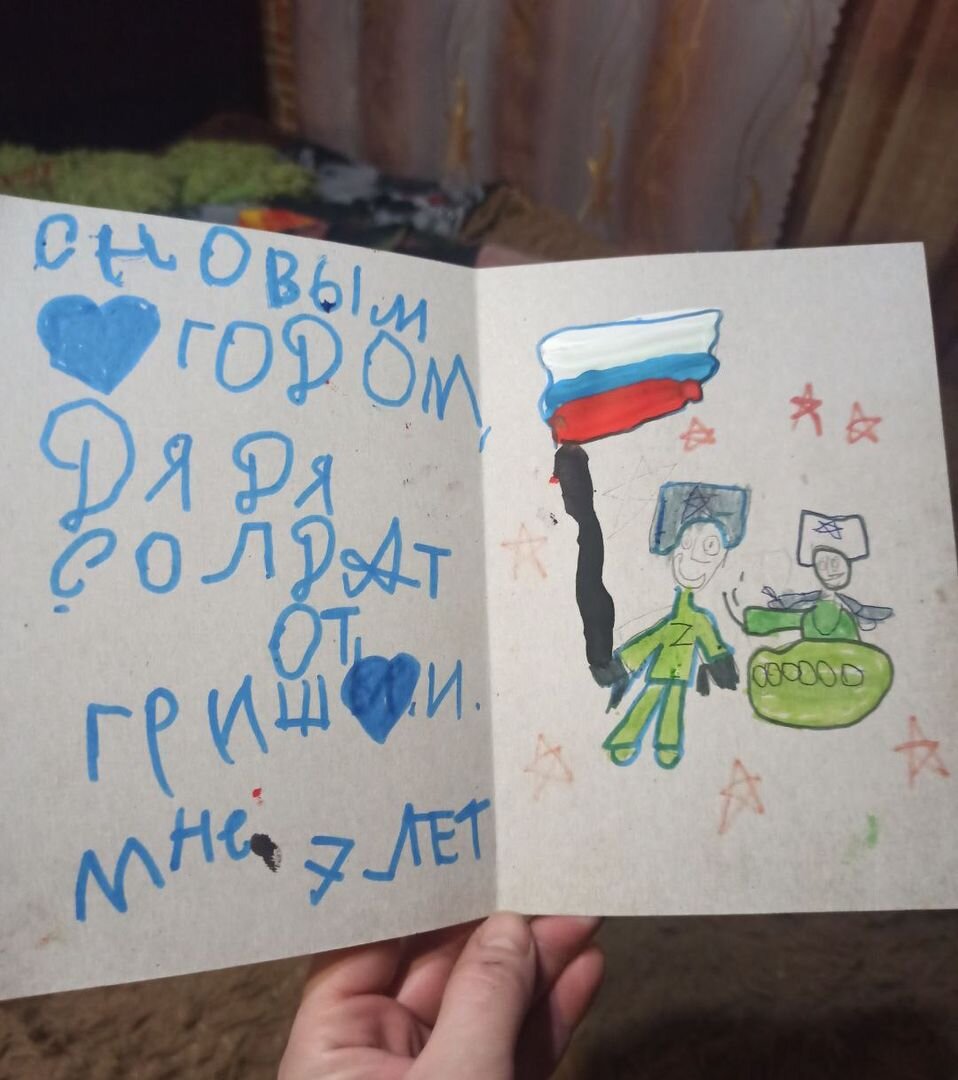 С НОВЫМ
ГОДОМ,
ДЯДЯ
СОЛДАТ
ОТ
ГРИШИ.
МНе 7 ЛЕТ
Z